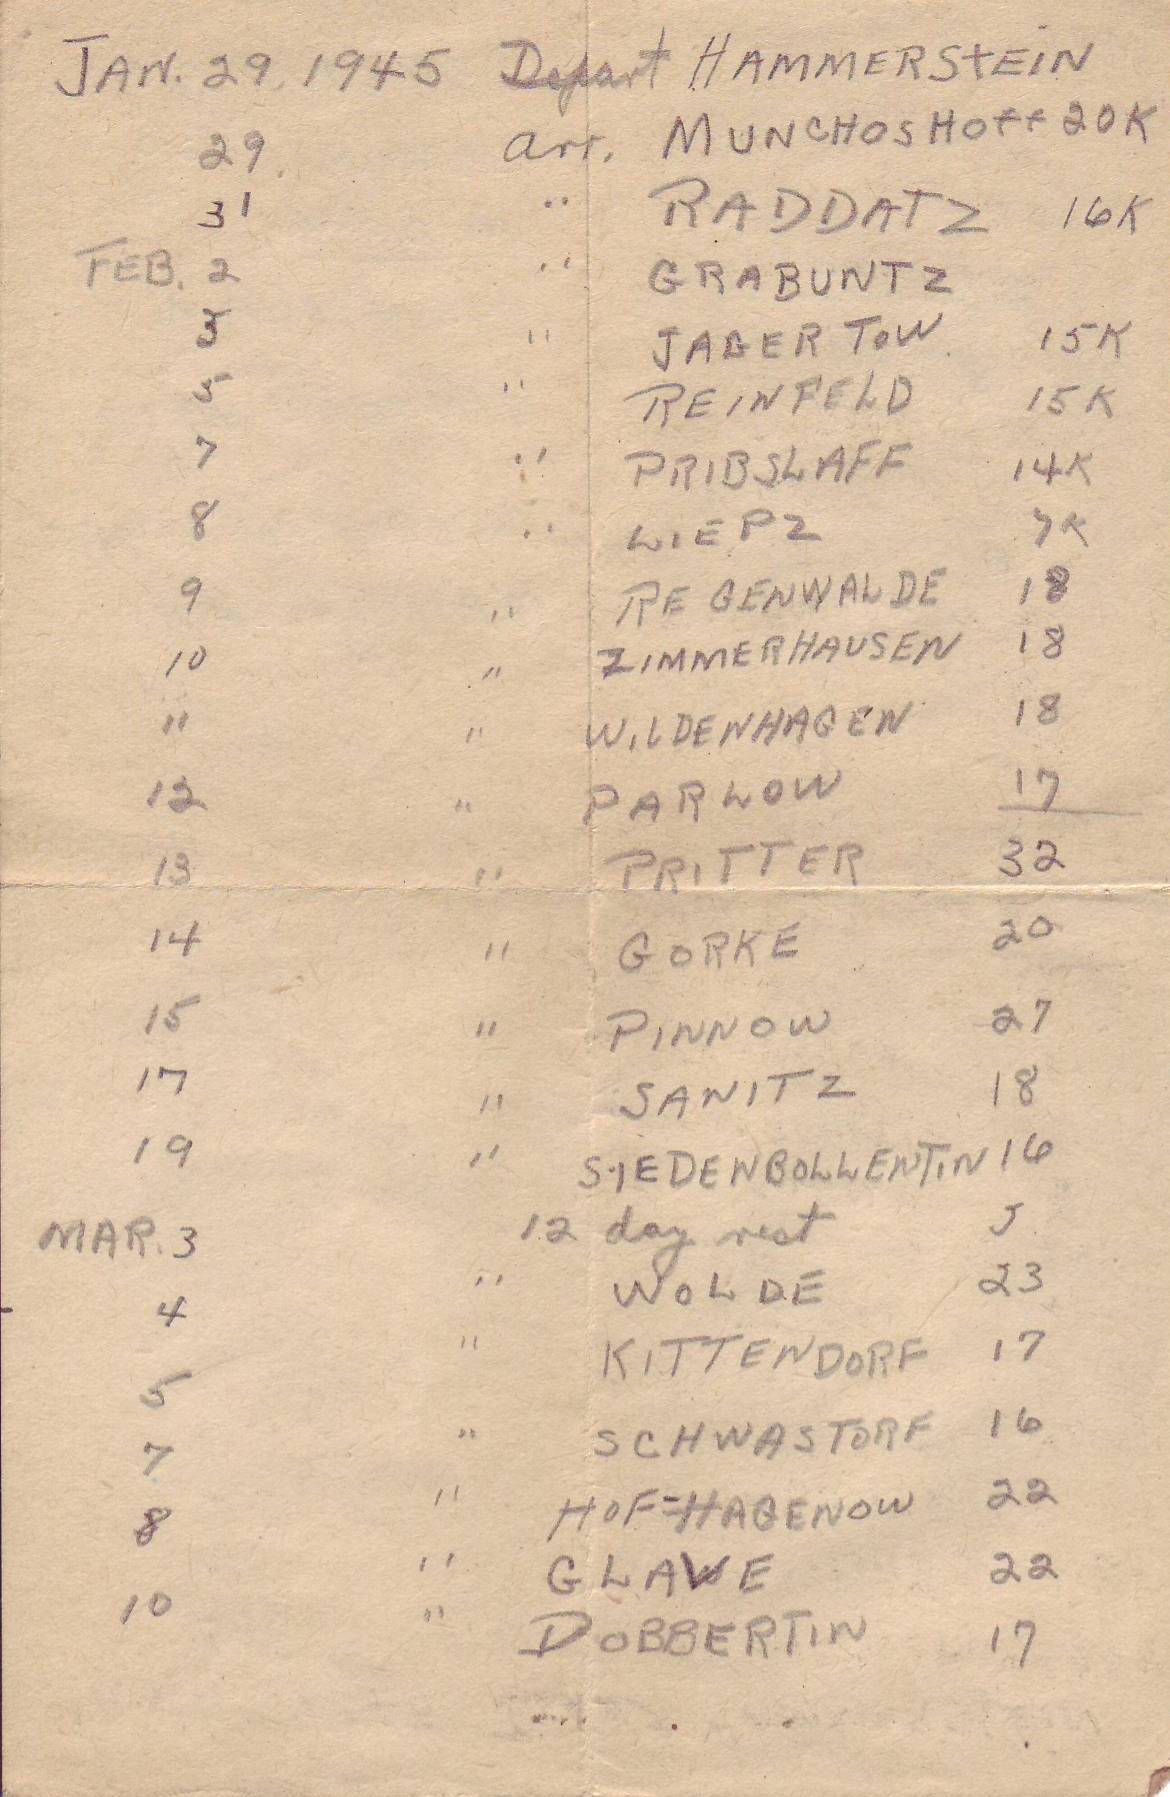 JAN. 29. 1945 Depart HAMMERSTEIN
29. arr. MUNCHOSHOff 20K
31 " RADDATZ 16K
FEB. 2 " GRABUNTZ
3 " JAGERTOW 15K
5 " REINFELD 15K
7 " PRIBSLAFF 14K
8 " LIEPZ 7K
9 " REGENWALDE 18
10 " ZIMMERHAUSEN 18
11 " WILDENHAGEN 18
12 " PARLOW 17
13 " PRITTER 32
14 " GORKE 20
15 " PINNOW 27
17 " SANITZ 18
19 " SIEDENBOLLENTIN 16
MAR. 3 12 day rest
4 " WOLDE 23
5 " KITTENDORF 17
7 " SCHWASTORF 16
8 " HOF-HAGENOW 22
" GLAVE 22
10 " DOBBERTIN 17